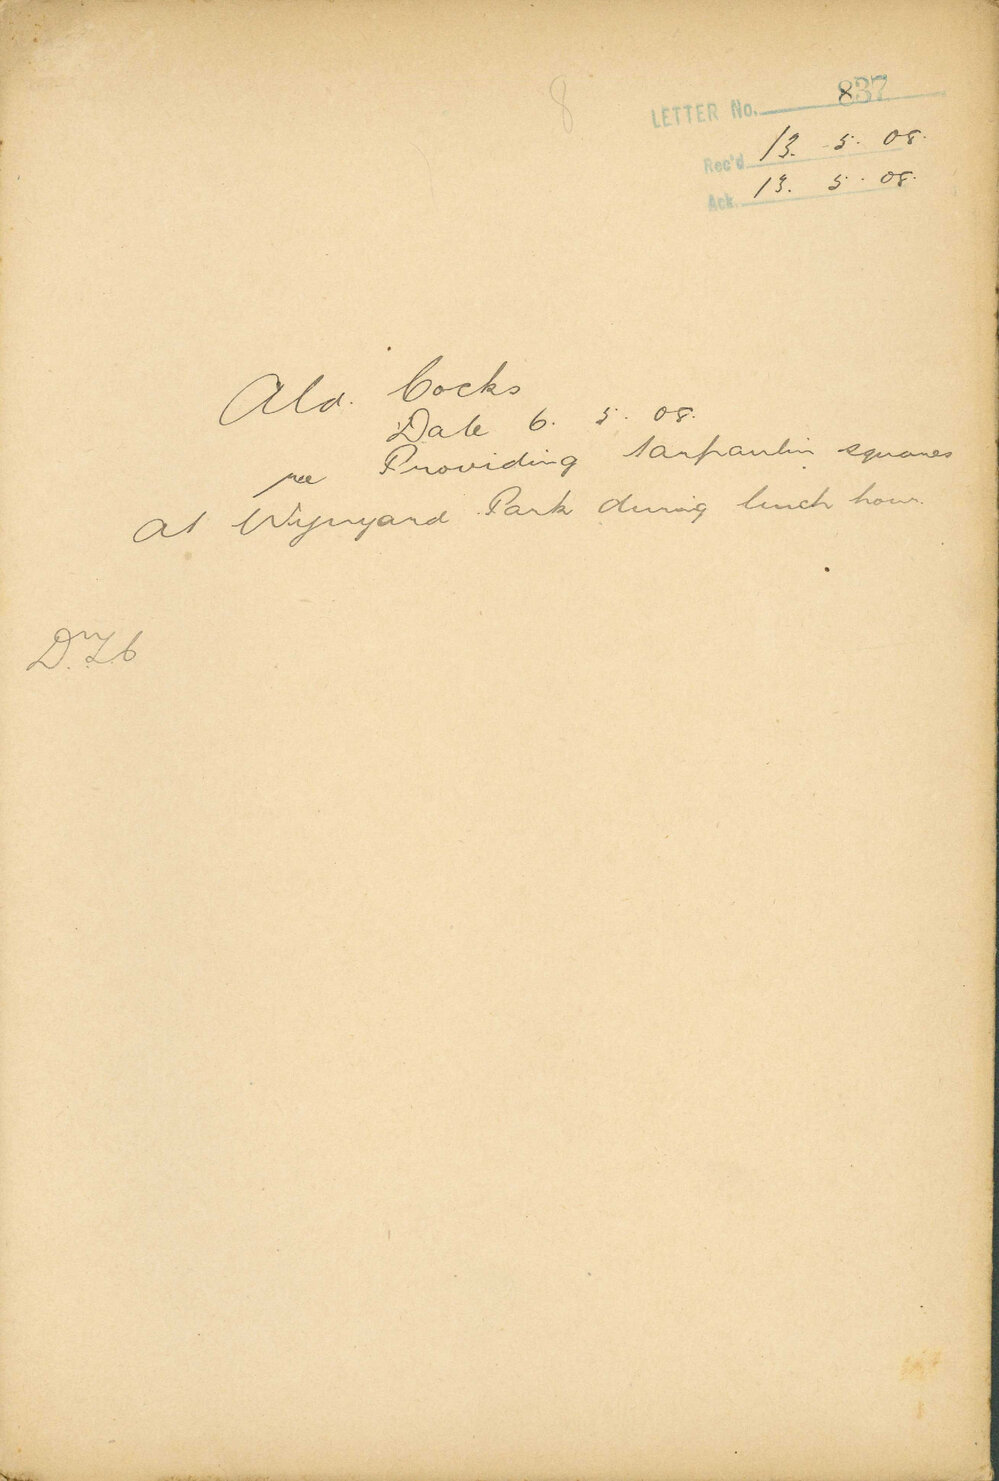 8
LETTER No. 837
Rec'd 13. 5. 08.
Ack. 13. 5. 08.
Ald. Cocks
Date 6. 5. 08.
re Providing tarpaulin squares
at Wynyard Park during lunch hour.